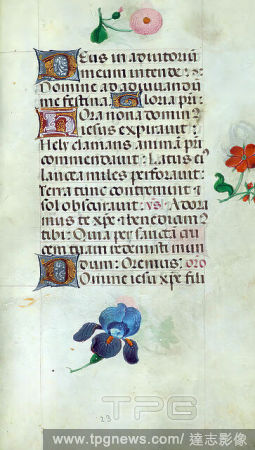 Deus in adiutorium
meum intende
Domine ad adiuuandu
me festina Gloria pri
Hora nona domin
iesus expirauit
Hely clamans animā pri
commendauit Latus ei
lancea miles perforauit
terra tunc contremuit et
sol obscurauit vs Adora
mus te xpe et benedicim
tibi Quia per sanctā cru
cem tuam redemisti mun
dum Oremus oro
Domine iesu xpe fili
23
TPG
www.tpgnews.com/達志影像